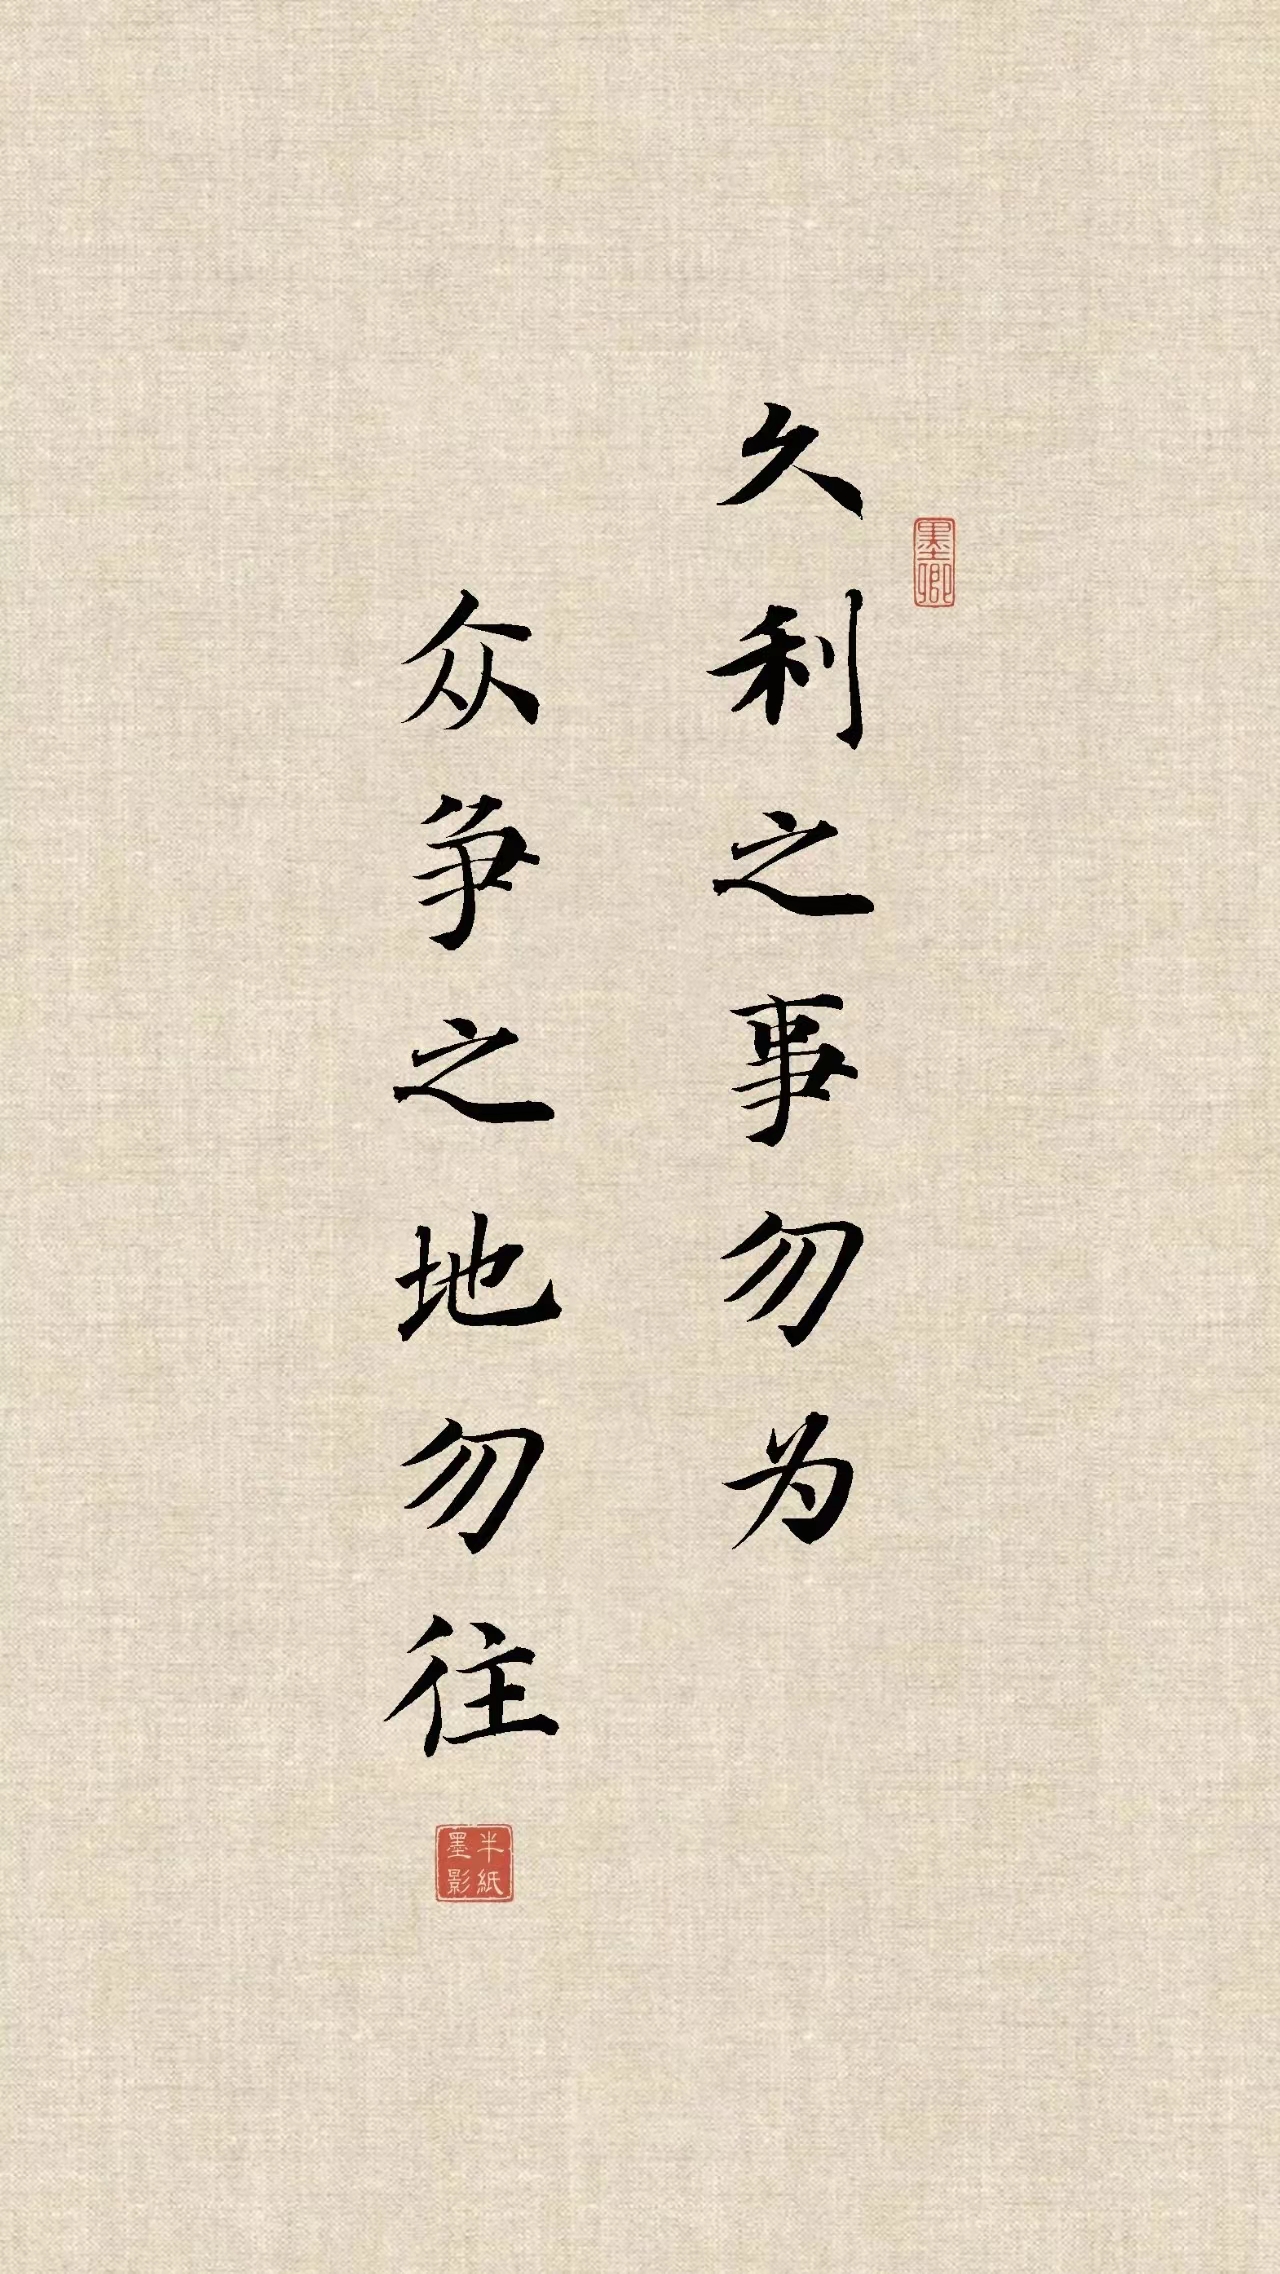 久利之事勿为
众争之地勿往
墨卿
半纸
墨影